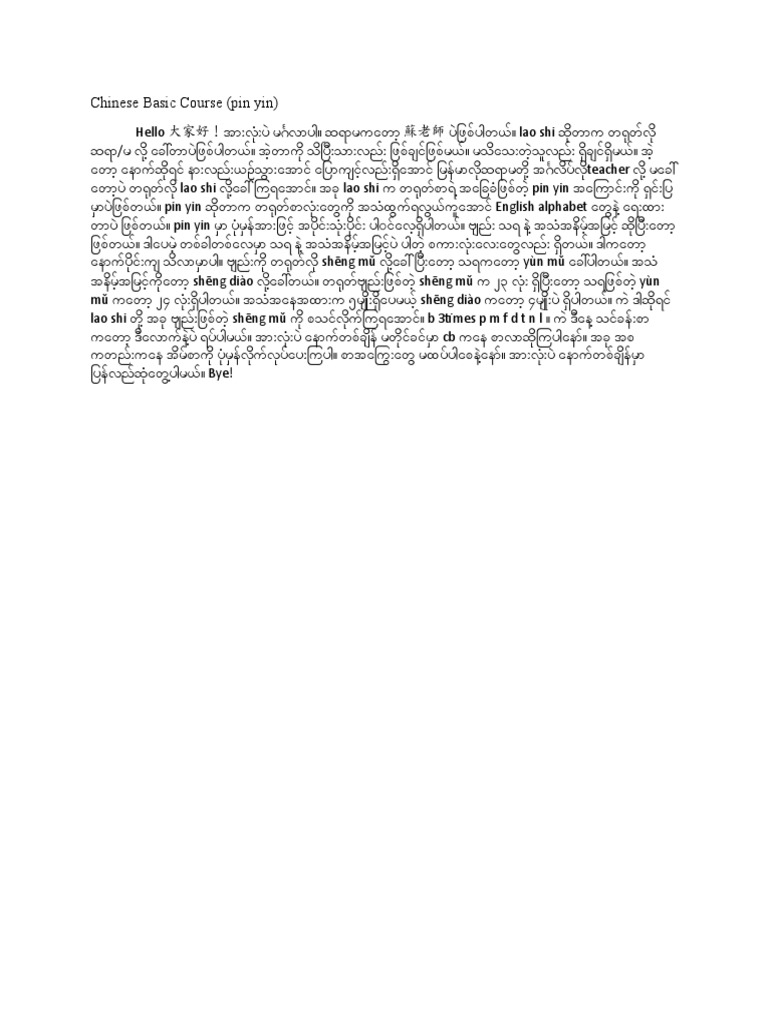 Chinese Basic Course (pin yin)
Hello 大家好！အားလုံးပဲ မင်္ဂလာပါ။ ဆရာမကတော့ 蘇老師 ပဲဖြစ်ပါတယ်။ lao shi ဆိုတာက တရုတ်လို
ဆရာ/မ လို့ ခေါ်တာပဲဖြစ်ပါတယ်။ အဲ့တာကို သိပြီးသားလည်း ဖြစ်ချင်ဖြစ်မယ်။ မသိသေးတဲ့သူလည်း ရှိချင်ရှိမယ်။ အဲ့
တော့ နောက်ဆိုရင် နားလည်းယဉ်သွားအောင် ပြောကျင့်လည်းရှိအောင် မြန်မာလိုထရာမတို့ အင်္ဂလိပ်လိုteacher လို့ မခေါ်
တော့ပဲ တရုတ်လို lao shi လို့ခေါ်ကြရအောင်။ အခု lao shi က တရုတ်စာရဲ့အခြေခံဖြစ်တဲ့ pin yin အကြောင်းကို ရှင်းပြ
မှာပဲဖြစ်တယ်။ pin yin ဆိုတာက တရုတ်စာလုံးတွေကို အသံထွက်ရလွယ်ကူအောင် English alphabet တွေနဲ့ ရေးထား
တာပဲ ဖြစ်တယ်။ pin yin မှာ ပုံမှန်အားဖြင့် အပိုင်းသုံးပိုင်း ပါဝင်လေ့ရှိပါတယ်။ ဗျည်း သရ နဲ့ အသံအနိမ့်အမြင့် ဆိုပြီးတော့
ဖြစ်တယ်။ ဒါပေမဲ့ တစ်ခါတစ်လေမှာ သရ နဲ့ အသံအနိမ့်အမြင့်ပဲ ပါတဲ့ စကားလုံးလေးတွေလည်း ရှိတယ်။ ဒါကတော့
နောက်ပိုင်းကျ သိလာမှာပါ။ ဗျည်းကို တရုတ်လို shēng mǔ လို့ခေါ်ပြီးတော့ သရကတော့ yùn mǔ ခေါ်ပါတယ်။ အသံ
အနိမ့်အမြင့်ကိုတော့ shēng diào လို့ခေါ်တယ်။ တရုတ်ဗျည်းဖြစ်တဲ့ shēng mǔ က ၂၃ လုံး ရှိပြီးတော့ သရဖြစ်တဲ့ yùn
mǔ ကတော့ ၂၄ လုံးရှိပါတယ်။ အသံအနေအထားက ၅မျိုးရှိပေမယ့် shēng diào ကတော့ ၄မျိုးပဲ ရှိပါတယ်။ ကဲ ဒါဆိုရင်
lao shi တို့ အခု ဗျည်းဖြစ်တဲ့ shēng mǔ ကို စသင်လိုက်ကြရအောင်။ b 3times p m f d t n l ။ ကဲ ဒီနေ့ သင်ခန်းစာ
ကတော့ ဒီလောက်နဲ့ပဲ ရပ်ပါမယ်။ အားလုံးပဲ နောက်တစ်ချိန် မတိုင်ခင်မှာ cb ကနေ စာလာဆိုကြပါနော်။ အခု အစ
ကတည်းကနေ အိမ်စာကို ပုံမှန်လိုက်လုပ်ပေးကြပါ။ စာအကြွေးတွေ မထပ်ပါစေနဲ့နော်။ အားလုံးပဲ နောက်တစ်ချိန်မှာ
ပြန်လည်ဆုံတွေ့ပါမယ်။ Bye!